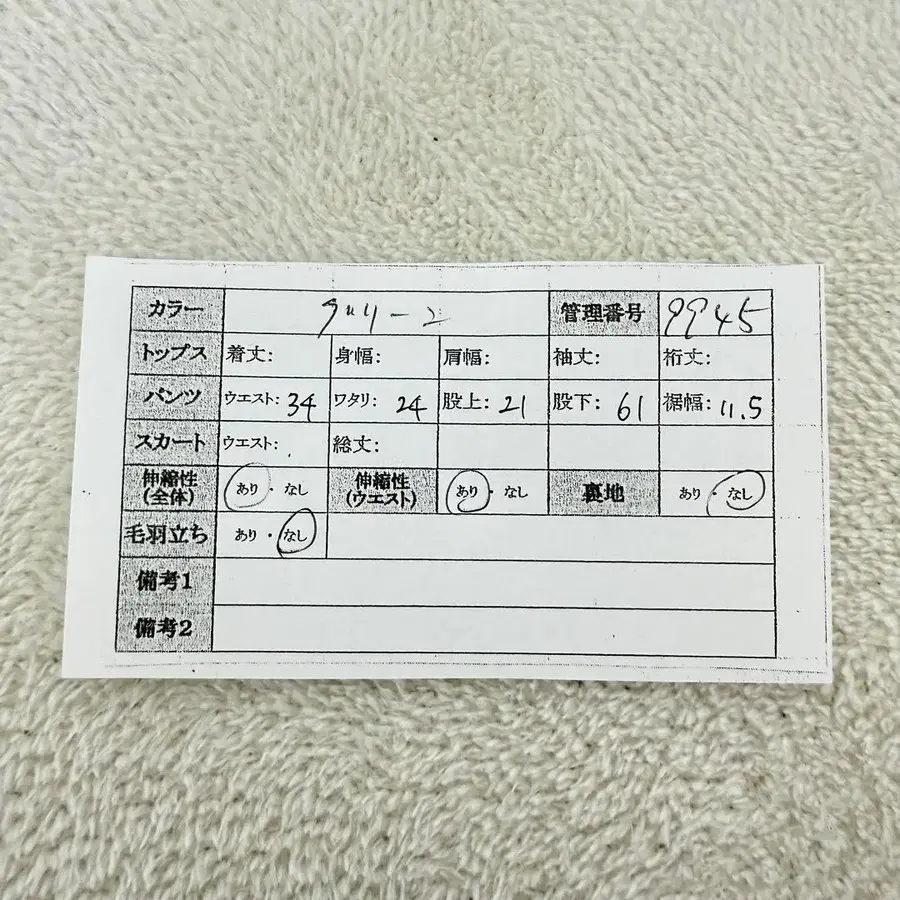 カラー グリーン 管理番号 9945
トップス 着丈: 身幅: 肩幅: 袖丈: 裄丈:
パンツ ウエスト: 34 ワタリ: 24 股上: 21 股下: 61 裾幅: 11.5
スカート ウエスト: 総丈:
伸縮性(全体) あり・なし 伸縮性(ウエスト) あり・なし 裏地 あり・なし
毛羽立ち あり・なし
備考1
備考2